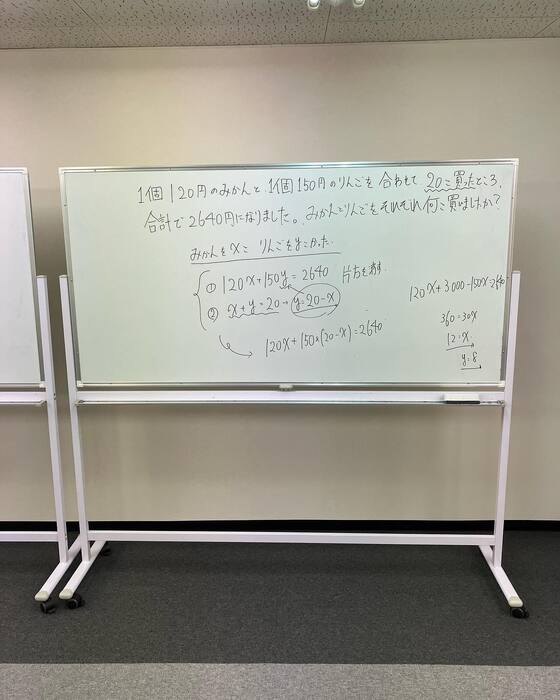 1個120円のみかんと1個150円のりんごを合わせて20こ買ったところ、
合計で2640円になりました。みかんとりんごをそれぞれ何こ買いましたか?
みかんをxこ りんごをyこかった
① 120x+150y=2640 片方を消す
② x+y=20→y=20-x
120x+150×(20-x)=2640
120x+3000-150x=2640
360=30x
12=x
y=8